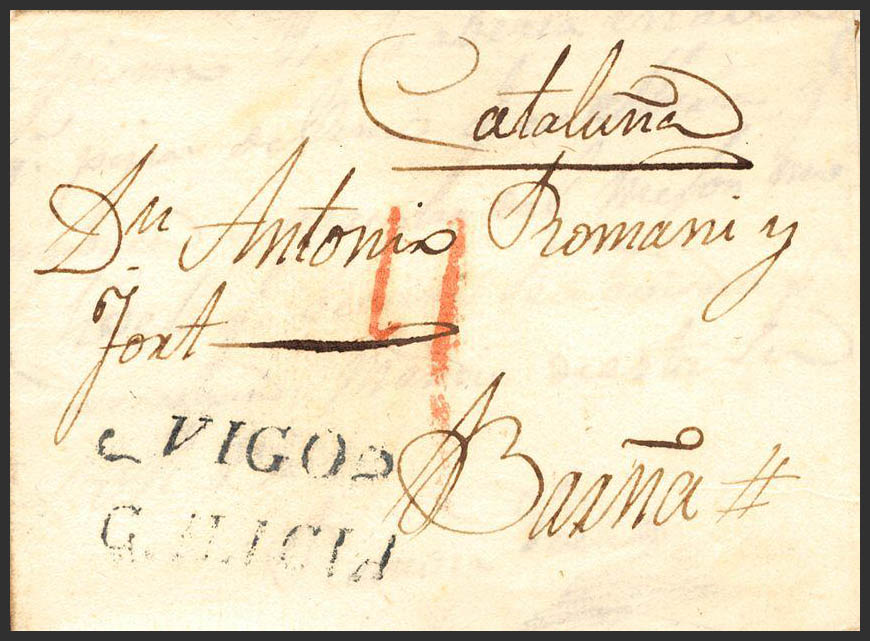 Cataluña
Dn Antonio Romani y
Font
4
VIGO
GALICIA
Barña